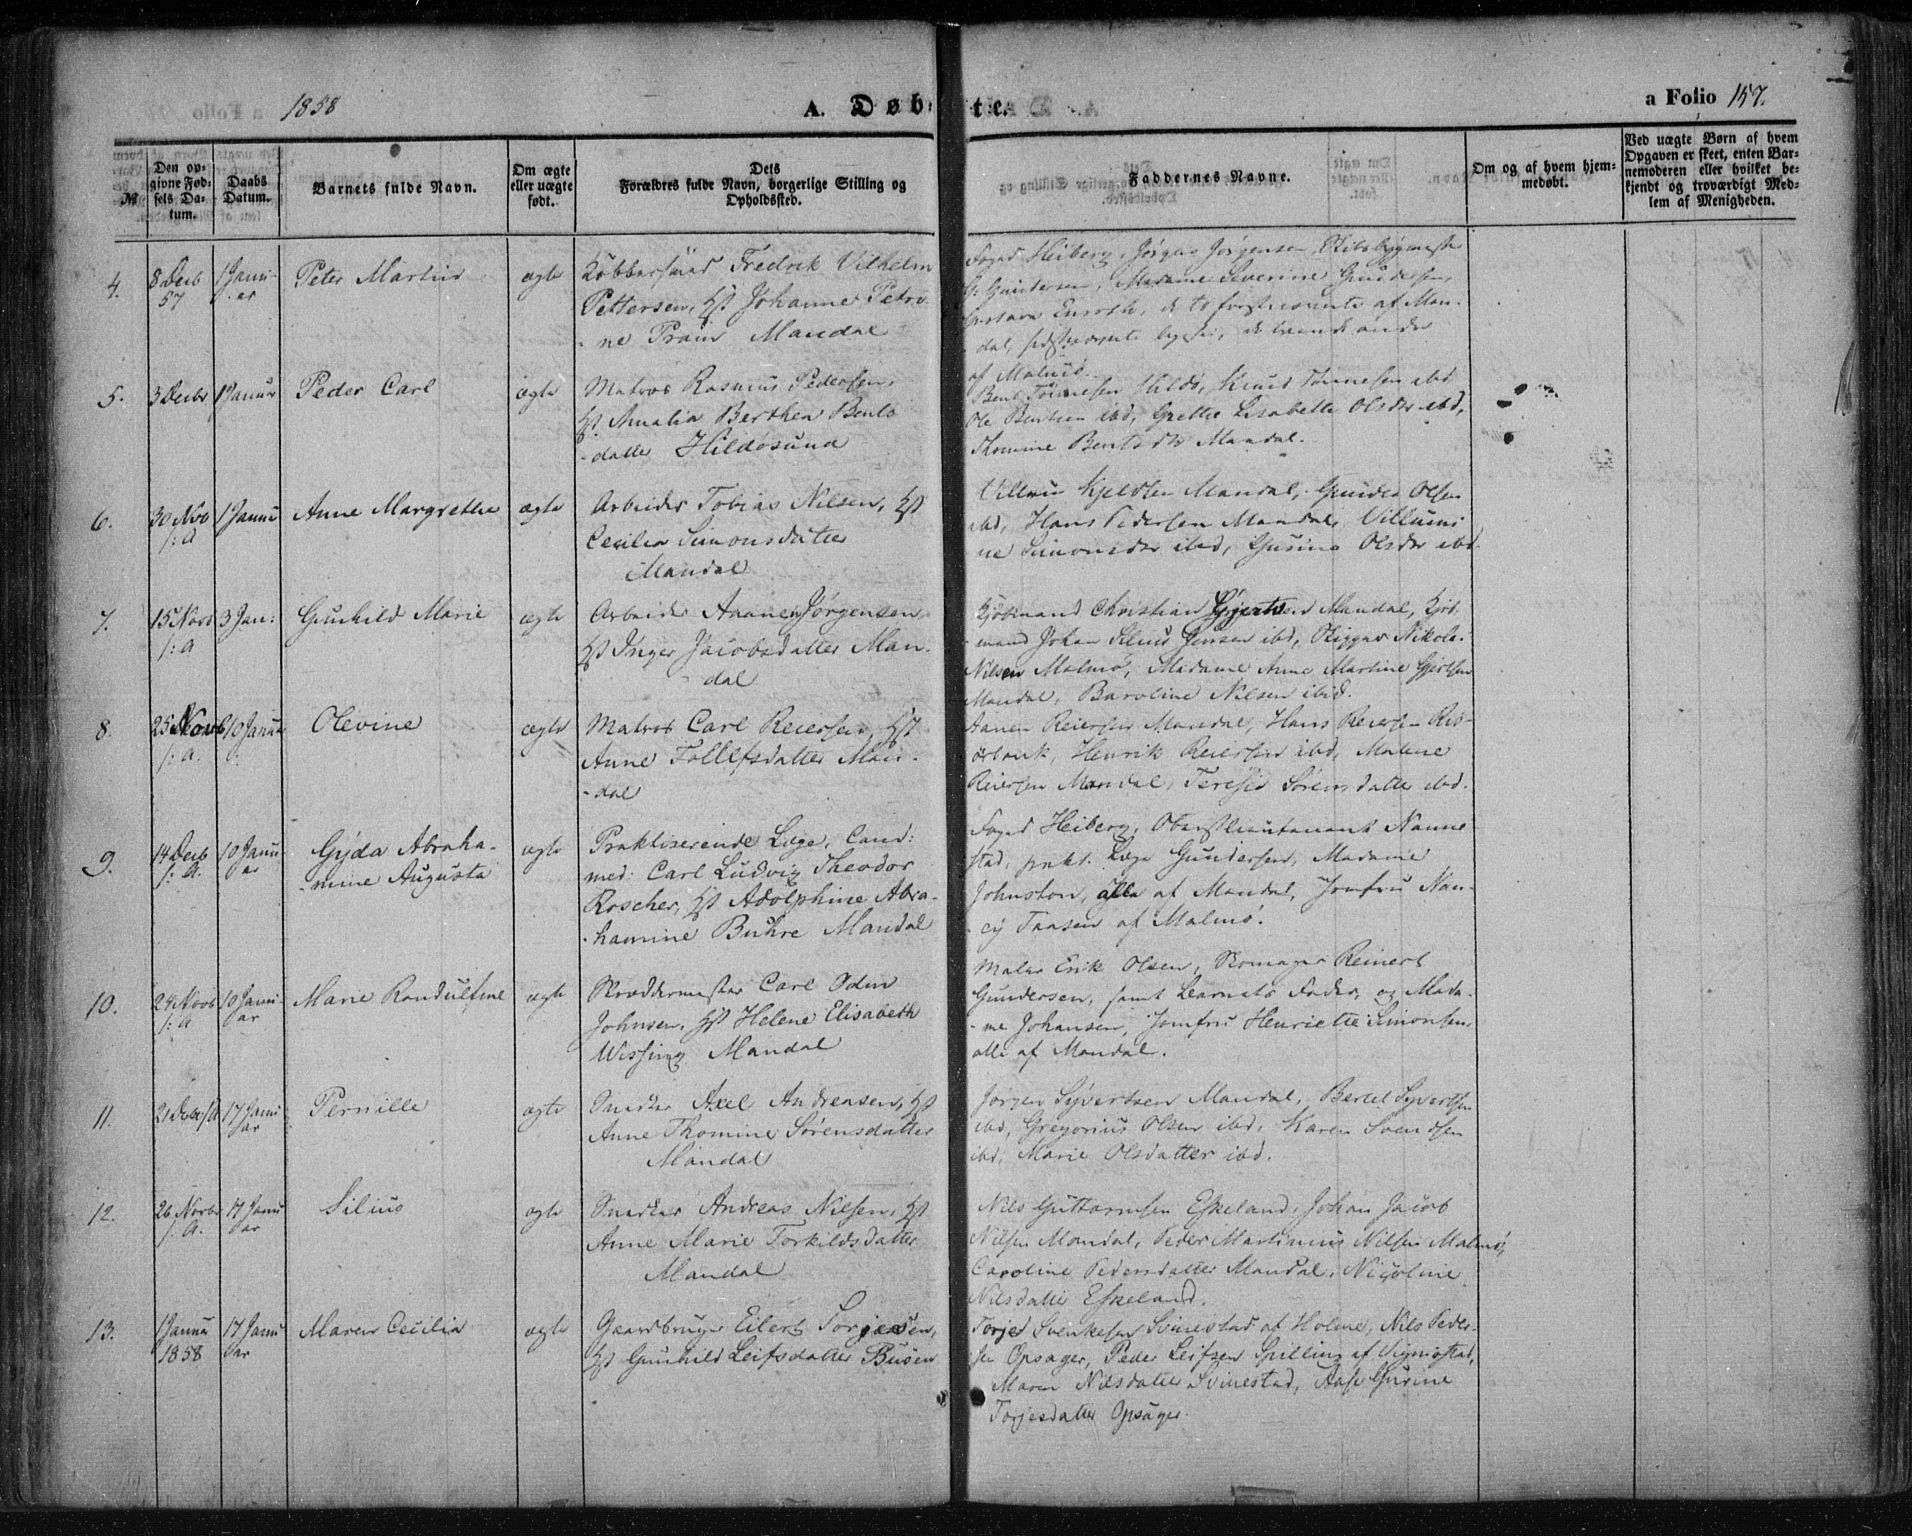 1858 A. Døbte. a Folio 157.
№
Den opgivne Fødsels Datum.
Daabs Datum.
Barnets fulde Navn.
Om ægte eller uægte født.
Dets Forældres fulde Navn, borgerlige Stilling og Opholdssted.
Faddernes Navne.
Om og af hvem hjemmedøbt.
Ved uægte Børn af hvem Opgaven er skeet, enten Barnemoderen eller hvilket bekjendt og troværdigt Medlem af Menigheden.
4. 8 Decb 57 1 Januer Peter Martin ægte
Fredrik Vilhelm
Pettersen, Hst Johanne Petri
-ne Mandal
Foged Heiberg, Jørgen Jørgensen,
Gundersen, Madame Severine Gundersen,
Gustava de to førstnævnte af Man-
dal, sidstnævnte de tvende andre
af Malmø.
5. 3 Decbr 1 Januar Peder Carl ægte
Matros Rasmus Pedersen,
Hst Amalia Berthea Bents
-datter Hildøsund
Bent Tønnesen Hildø, Knud Tønnesen ibd
Ole Bentsen ibd, Grethe Lisabette Olsdr ibd,
Thomine Bentsdr Mandal.
6. 30 Nov /:A 1 Janua Anne Margrethe ægte
Arbeider Tobias Nilsen, Hst
Cecilia Simonsdatter
Mandal
Villum Kjeldsen Mandal, Gunder Olsen
ibd, Hans Pedersen Mandal, Villumi
ne Simonsdr ibd, Gusine Olsdr ibd.
7. 15 Novb /:A 3 Jan: Gunhild Marie ægte
Arbeider Aanen Jørgensen
Hst Inger Jacobsdatter Man-
dal
Kjøbmand Christian Gjertsen Mandal, Kjøb
-mand Johan Jensen ibd, Rigger Nikolai
Nilsen Malmø, Madame Anne Martine Gjertsen
Mandal, Baroline Nilsen ibid.
8. 25 Novb /:A. 10 Janua Olevine ægte
Matros Carl Reiersen, Hst
Anne Tollefsdatter Man-
-dal
Aanen Reiersen Mandal, Hans Reiersen Ris-
øbank, Henrik Reiersen ibd, Malene
Reiersen Mandal, Teresie Sørensdatter ibd.
9. 14 Decb /:A. 10 Januar Gyda Abraha-
-mine Augusta ægte
Praktiserende Læge, Cand:
med: Carl Ludvig Theodor
Roscher, Hst Adolphine Abra-
-hamine Buhre Mandal
Foged Heiberg, Oberstlieutenant Nanne
stad, prakt. Læge Gundersen, Madame
Johnston, alle af Mandal, Jomfru Nan-
-cy Taasen af Malmø.
10. 24 Novb /:A 10 Januar Marie Randulfine ægte
Skræddermester Carl Odin
Johnsen, Hst Helene Elisabeth
Wissing Mandal
Maler Erik Olsen, Skomager Reinert
Gundersen, samt Barnets Fader, og Mada-
-me Johansen, Jomfru Henriette Simonsen,
alle af Mandal.
11. 21 Decb /:A 17 Januar Pernille ægte
Snedker Axel Andreasen, Hst
Anne Thomine Sørensdatter
Mandal
Jørgen Syvertsen Mandal, Bertel Syvertsen
ibd, Gregorius Olsen ibd, Karen Svendsen
ibd, Marie Olsdatter ibd.
12. 26 Novbr /:A. 17 Januar Silius ægte
Snedker Andreas Nilsen, Hst
Anne Marie Torkildsdatter
Mandal
Nils Guttormsen Eskeland, Johan Jacob
Nilsen Mandal, Peder Martinius Nilsen Malmø,
Caroline Pedersdatter Mandal, Nicoline
Nilsdatter Eskeland.
13. 1 Janua 1858 17 Januar Maren Cecilia ægte
Gaardbruger Eilert Torjesen,
Hst Gunhild Leifsdatter Busen
Torjes Svenkesen Svinestad af Holme, Nils Peder-
sen Opsager, Peder Leifsen Spilling af Vigmostad,
Maren Nilsdatter Svinestad, Aase Gurine
Torjesdatter Opsager.